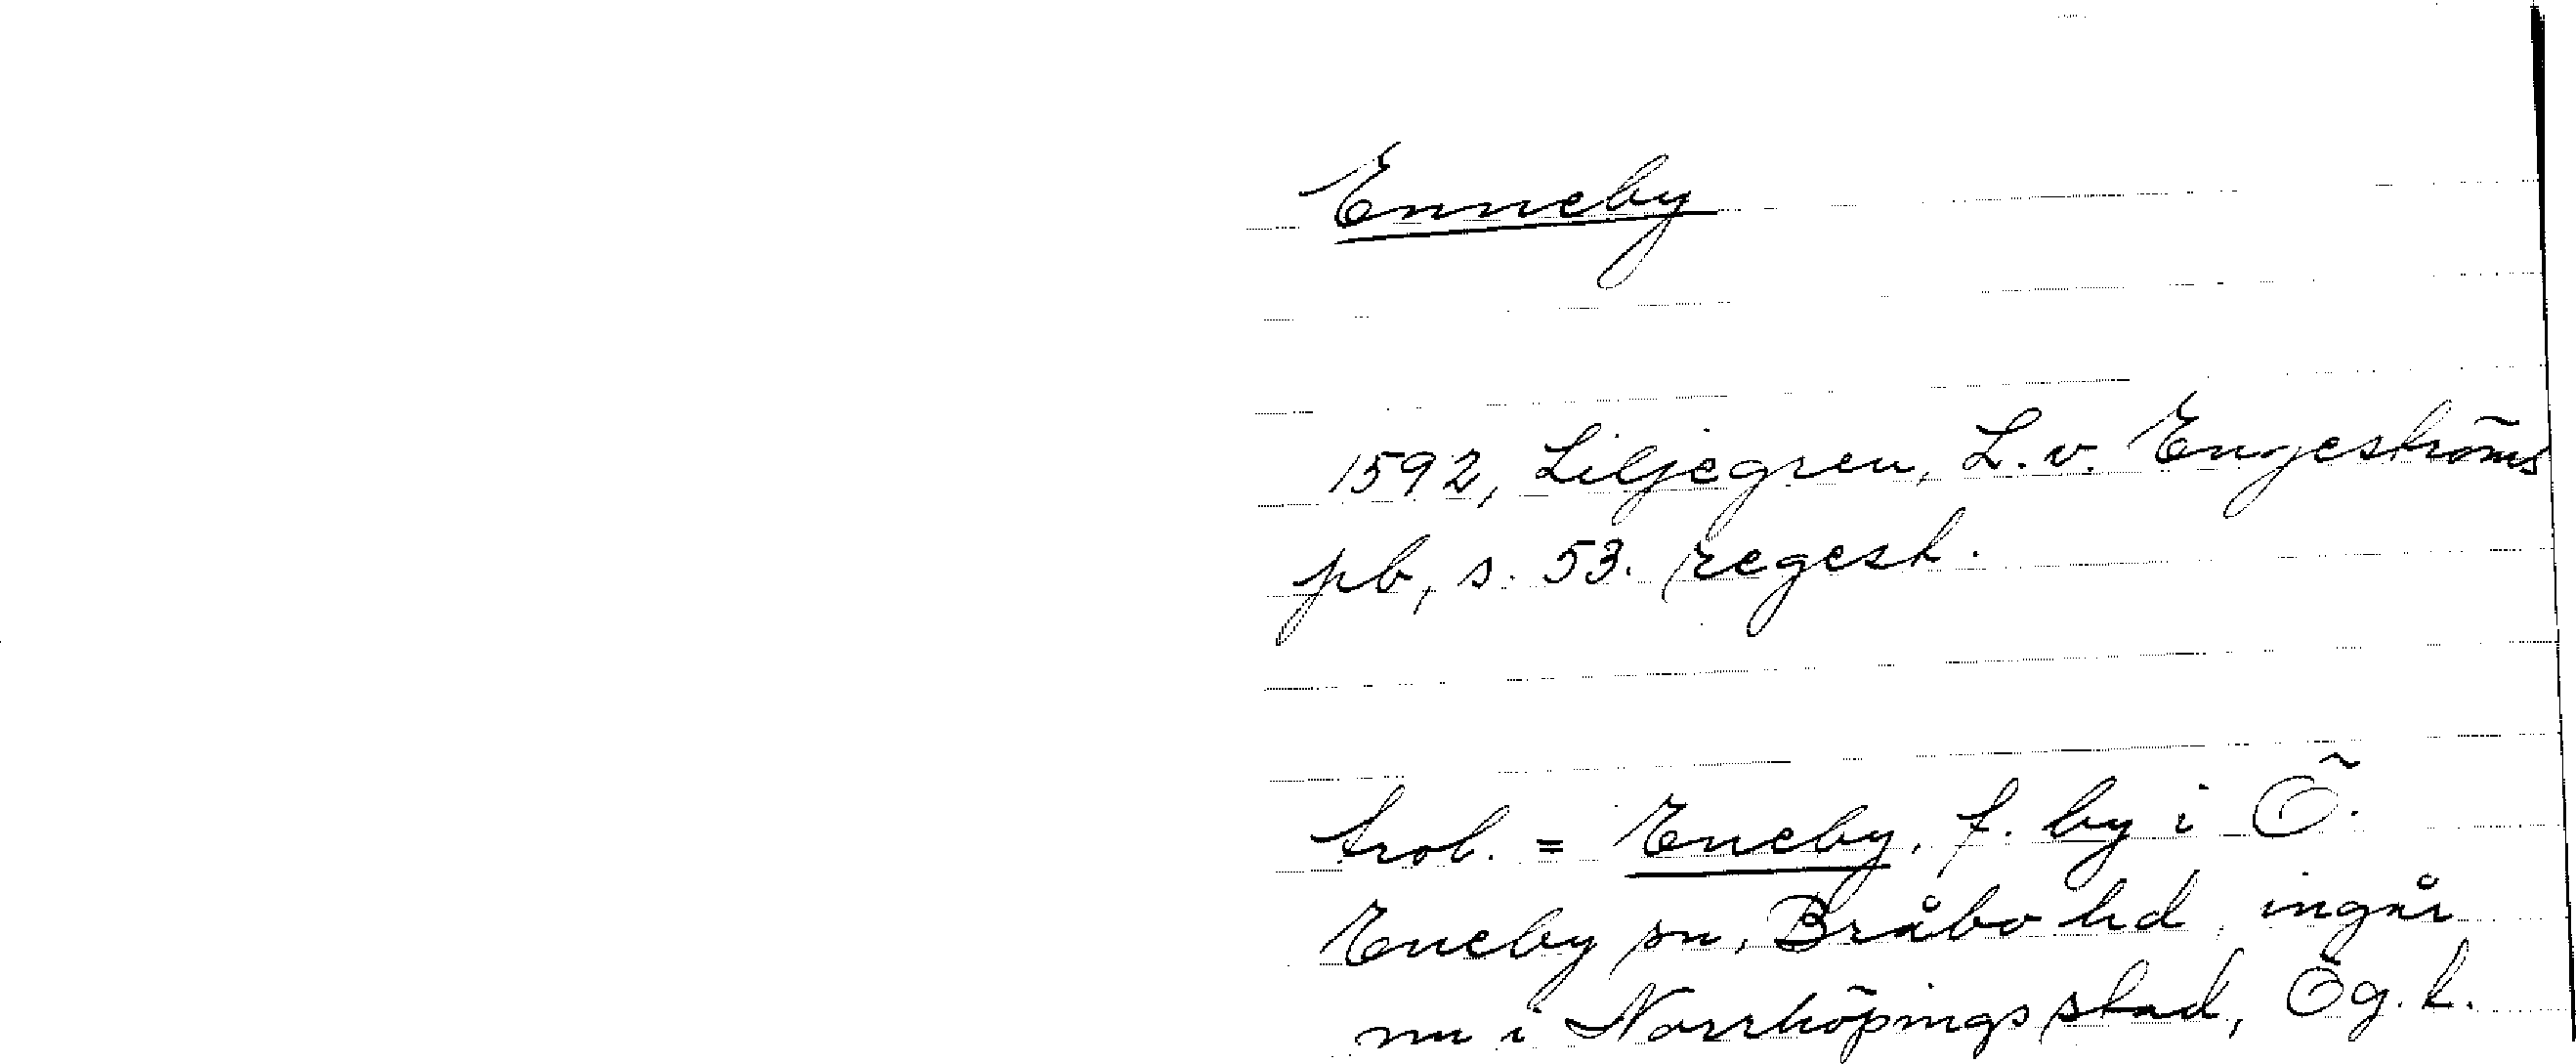 Enneby
1592, Liljegren, L. v. Engeströms
pb, s. 53. regest.
trol. = Eneby, f. by i Ö.
Eneby sn, Bråbo hd, ingår
nu i Norrköpings stad, Ög. l.